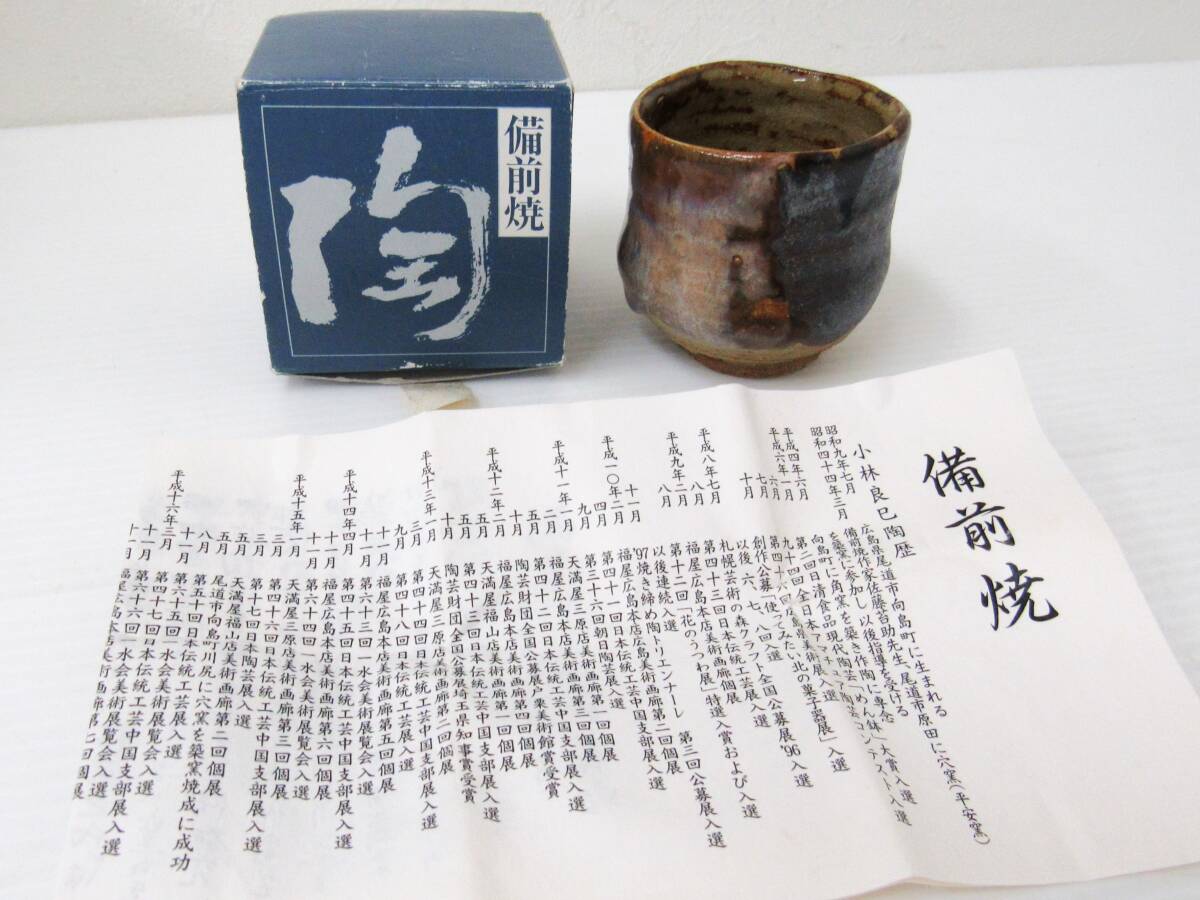 備前焼
陶
備前焼
小林良巳 陶歴
昭和九年七月 広島県尾道市向島町に生まれる
昭和四十四年三月 備前焼作家佐藤苔助先生、尾道市原田に穴窯(平安窯)
を築窯に参加し、以後指導を受ける
平成四年六月 向島町に角窯を築き作陶に専念
平成六年一月
六月
七月
十月 創作公募「使ってみたい北の菓子器展」入選
以後、六、七、八回入選
平成八年七月 札幌芸術の森クラフト全国公募展'96入選
八月 第四十三回日本伝統工芸展入選
平成九年二月 福屋広島本店美術画廊個展
八月 第十二回「花のうつわ展」特選入賞および入選
以後連続入選
十一月 '97焼き締め陶トリエンナーレ 第三回公募展入選
平成一〇年二月 福屋広島本店広島美術画廊第二回個展
四月 第四十一回日本伝統工芸中国支部展入選
九月 第三十六回朝日陶芸展入選
平成十一年一月 天満屋三原店美術画廊第一回個展
二月 福屋広島本店美術画廊第三回個展
五月 第四十二回日本伝統工芸中国支部展入選
十月 陶芸財団全国公募展戸栗美術館賞受賞
平成十二年二月 福屋広島本店美術画廊第四回個展
五月 天満屋福山店美術画廊第一回個展
五月 第四十三回日本伝統工芸中国支部展入選
十月 陶芸財団全国公募展埼玉県知事賞受賞
平成十三年一月 天満屋三原店美術画廊第二回個展
三月
九月 第四十八回日本伝統工芸展入選
十月 福屋広島本店美術画廊第五回個展
十一月 第六十三回一水会美術展覧会入選
平成十四年四月 第四十五回日本伝統工芸中国支部展入選
十月 福屋広島本店美術画廊第六回個展
十一月 第六十四回一水会美術展覧会入選
平成十五年一月 天満屋三原店美術画廊第三回個展
三月 第四十六回日本伝統工芸中国支部展入選
三月 第十七回日本陶芸展入選
五月 天満屋福山店美術画廊第二回個展
五月 尾道市向島町川尻に穴窯を築窯焼成に成功
八月 第五十回日本伝統工芸展入選
十一月 第六十五回一水会美術展覧会入選
平成十六年三月 第四十七回日本伝統工芸中国支部展入選
十一月 第六十六回一水会美術展覧会入選
十一月 福屋広島本店美術画廊第七回個展